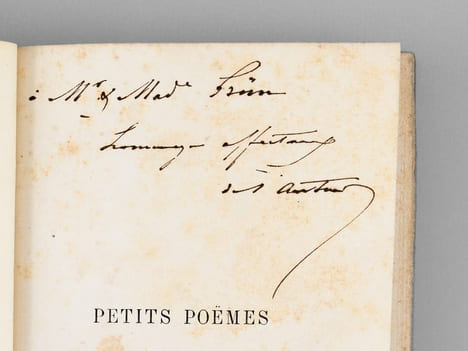 à Mr & Made Grün
hommage affectueux
de l'auteur
PETITS POËMES